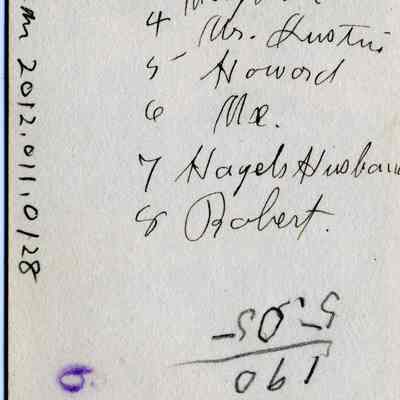 4 Mr. Austin
5 Howard
6 Me.
7 Hazels Husban
8 Robert.
m 2012.011.0128
5.05-
190
6